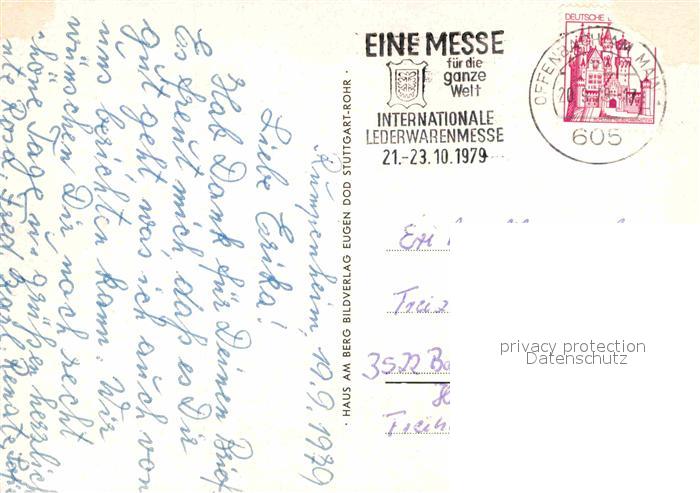 EINE MESSE
für die
ganze
Welt
INTERNATIONALE
LEDERWARENMESSE
21.-23.10.1979
DEUTSCHE
OFFENBACH AM MAIN
20.9.
17
605
Rumpenheim, 19.9.1979
Liebe Erika!
Hab Dank für Deinen Brief
Es freut mich, daß es Dir
gut geht, was ich auch von
uns berichten kann. Wir
wünschen Dir noch recht
schöne Tage u. grüßen herzlich
Fred Karl Renate
· HAUS AM BERG BILDVERLAG EUGEN DOD STUTTGART-ROHR ·
Eri
Freiz
3522 Ba
Freih
privacy protection
Datenschutz